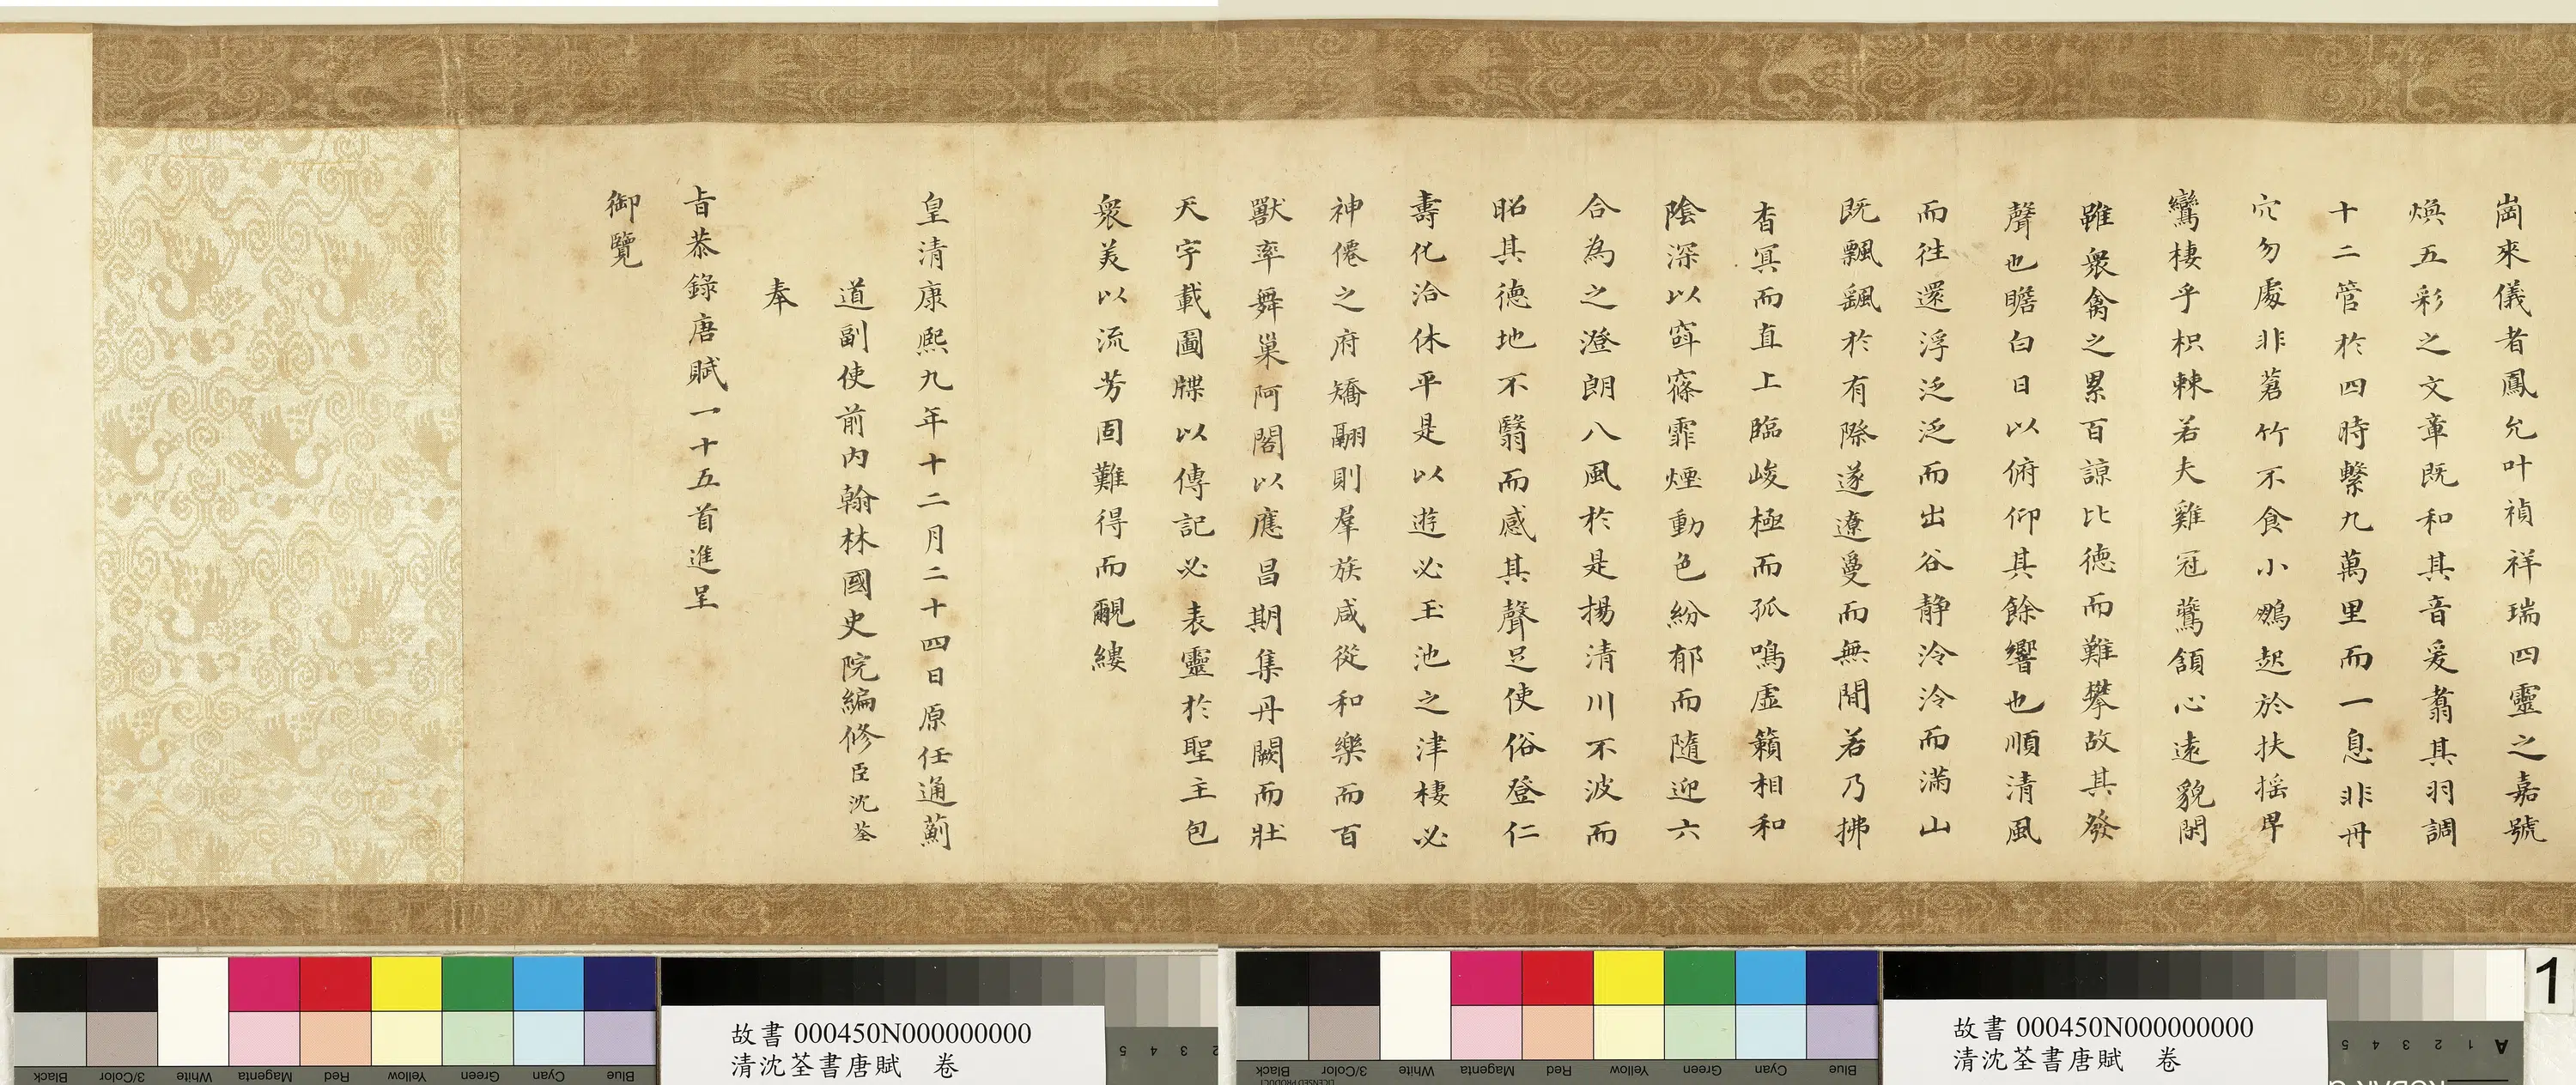 崗來儀者鳳允叶禎祥瑞四靈之嘉號
煥五彩之文章既和其音爰翥其羽調
十二管於四時繫九萬里而一息非丹
穴勿處非蒼竹不食小鷃起於扶揺卑
鸞棲乎枳棘若夫雞冠鷰頷心遠貌閑
雖衆禽之累百諒比德而難攀故其發
聲也瞻白日以俯仰其餘響也順清風
而往還浮泛泛而出谷静泠泠而滿山
既飄颻於有際遂遼敻而無閒若乃拂
杳冥而直上臨峻極而孤鳴虛籟相和
陰深以窅窱霏煙動色紛郁而隨迎六
合為之澄朗八風於是揚清川不波而
昭其德地不翳而感其聲足使俗登仁
壽化洽休平是以遊必玉池之津棲必
神僊之府矯翮則羣族咸從和樂而百
獸率舞巢阿閣以應昌期集丹闕而壯
天宇載圖牒以傳記必表靈於聖主包
衆美以流芳固難得而覼縷
皇清康熙九年十二月二十四日原任通薊
道副使前内翰林國史院編修臣沈荃
奉
旨恭錄唐賦一十五首進呈
御覽
Black 3/Color White Magenta Red Yellow Green Cyan Blue
故書 000450N000000000
清沈荃書唐賦 卷
5 4 3 2
Black 3/Color White Magenta Red Yellow Green Cyan Blue
LICENSED PRODUCT
故書 000450N000000000
清沈荃書唐賦 卷
5 4 3 2 1 A
1